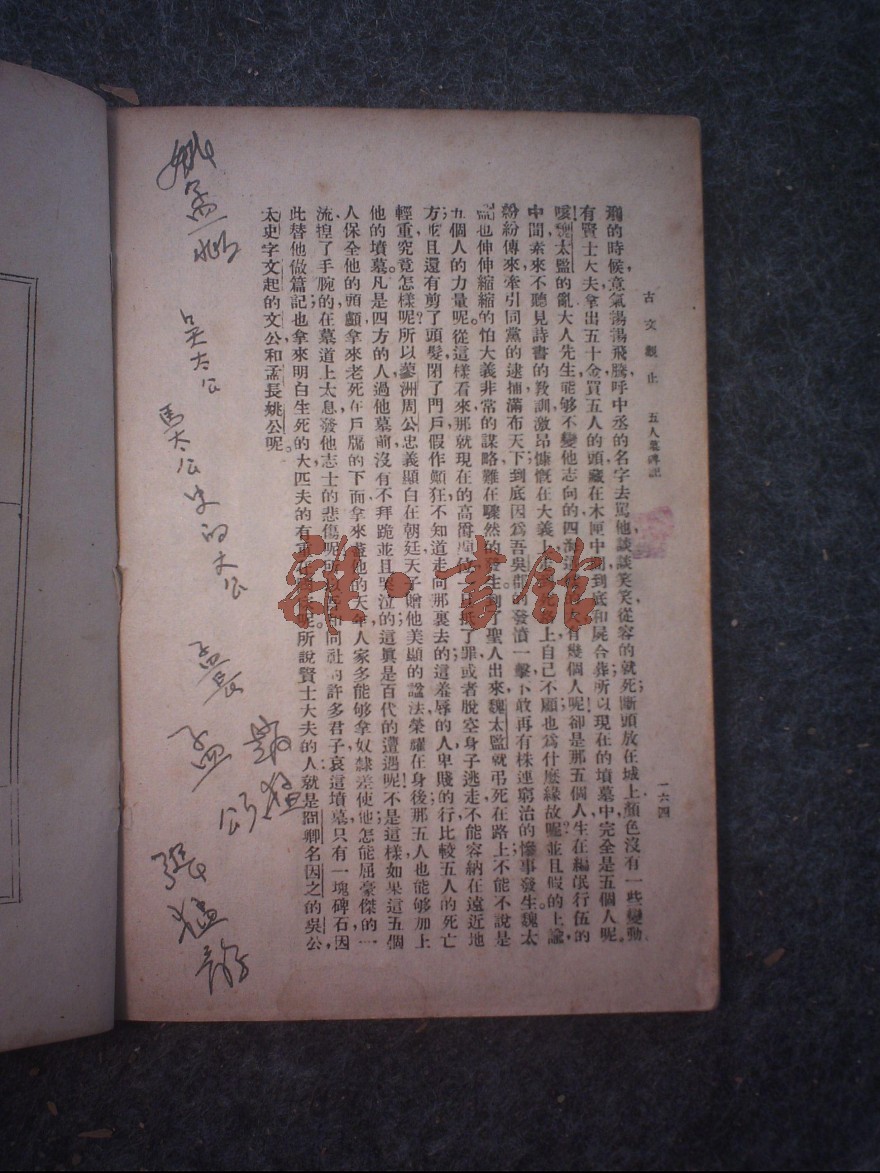 古文觀止 五人墓碑記
一六四
刑的時候意氣揚揚飛騰呼中丞的名字去罵他談談笑笑從容的就死斷頭放在城上顏色沒有一些變動
有賢士大夫拿出五十金買五人的頭藏在木匣中間到底和屍合葬所以現在的墳墓中完全是五個人呢。
唉魏太監的亂大人先生能够不變他志向的四海
有幾個人呢卻是那五個人生在編氓行伍的
中間素來不聽見詩書的敎訓激昂慷慨在大義上
上自己不顧也爲什麽緣故呢並且假的上諭
紛紛傳來牽引同黨的逮捕滿布天下到底因爲吾吳郡的發憤一擊不敢再有株連窮治的慘事發生魏太
監也伸伸縮縮的怕大義非常的謀略難在驟然的發生到了聖人出來魏太監就弔死在路上不能不說是
五個人的力量呢從這樣看來那就現在的高爵
一旦抵了罪或者脫空身子逃走不能容納在遠近地
方並且還有剪了頭髮閉了門戶假作顛狂不知道走向那裏去的這羞辱的人卑賤的行比較五人的死亡
輕重究竟怎樣呢所以蓼洲周公忠義顯白在朝廷天子贈他美顯的諡法榮耀在身後那五人也能够加上
他的墳墓凡是四方的人過他墓前沒有不拜跪並且哭泣的這眞是百代的遭遇呢不是這樣如果這五個
人保全他的頭顱拿來老死在戶牖的下面拿來盡他的天年人家多能够拿奴隸差使他怎能屈豪傑的一
流揑了手腕的在墓道上太息發他志士的悲傷呢所以我和同社的許多君子哀這墳墓只有一塊碑石因
此替他做篇記也拿來明白生死的大匹夫的有重
呢所說賢士大夫的人就是冏卿名因之的吳公
太史字文起的文公和孟長姚公呢。
姚孟
吳太公
馬太公
的太公
孟長
孟
張猛
雜·書館